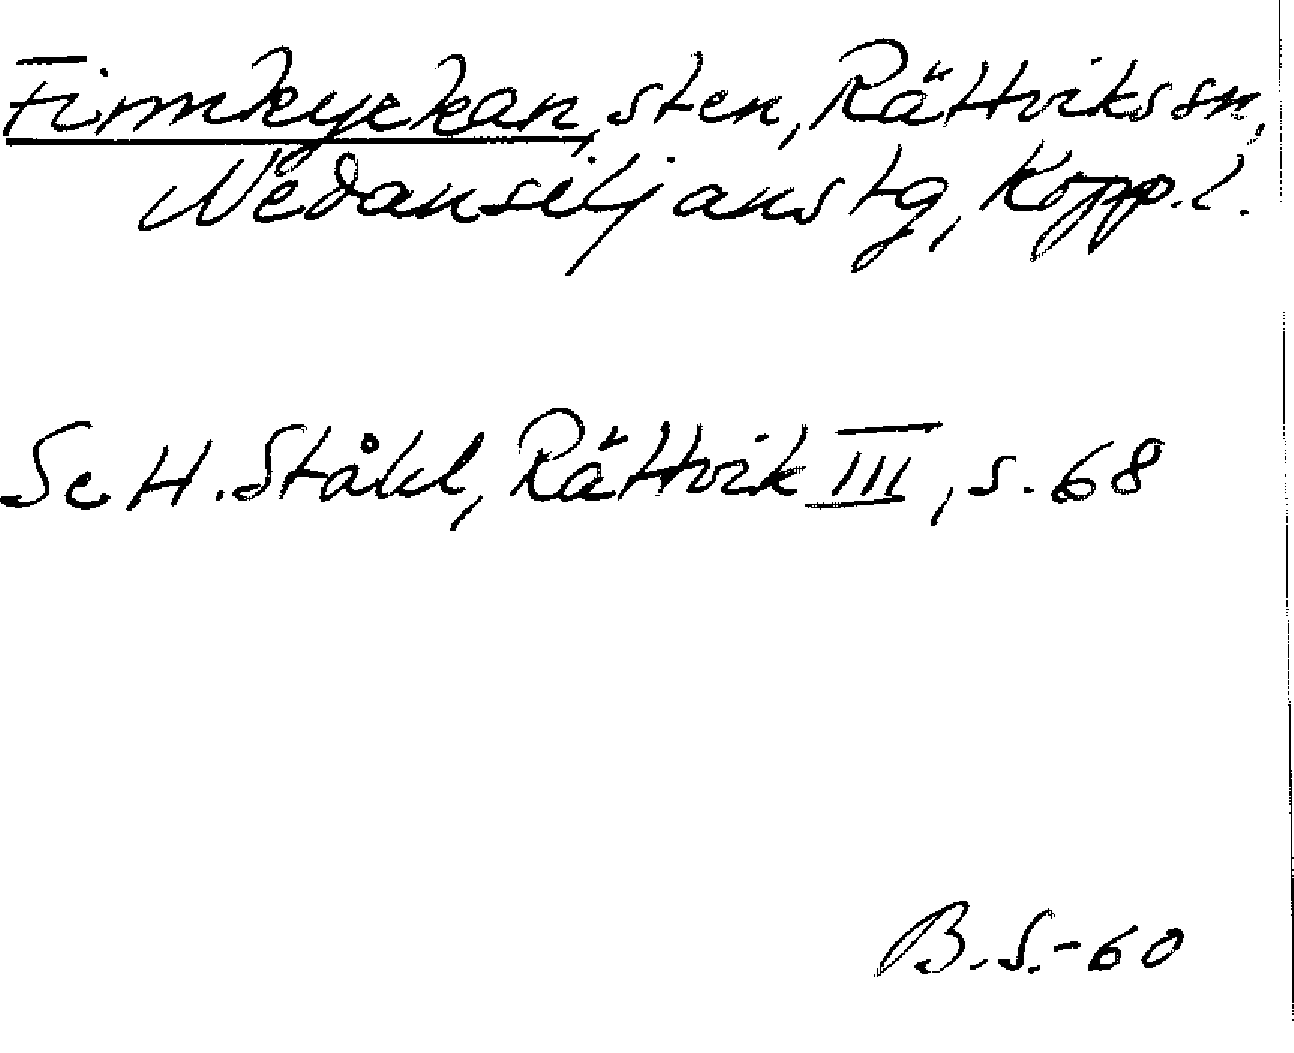 Finnkyrkan, sten, Rättviks sn,
Nedansiljans tg, Kopp. l.
Se H. Ståhl, Rättvik III, s. 68
B.S.-60